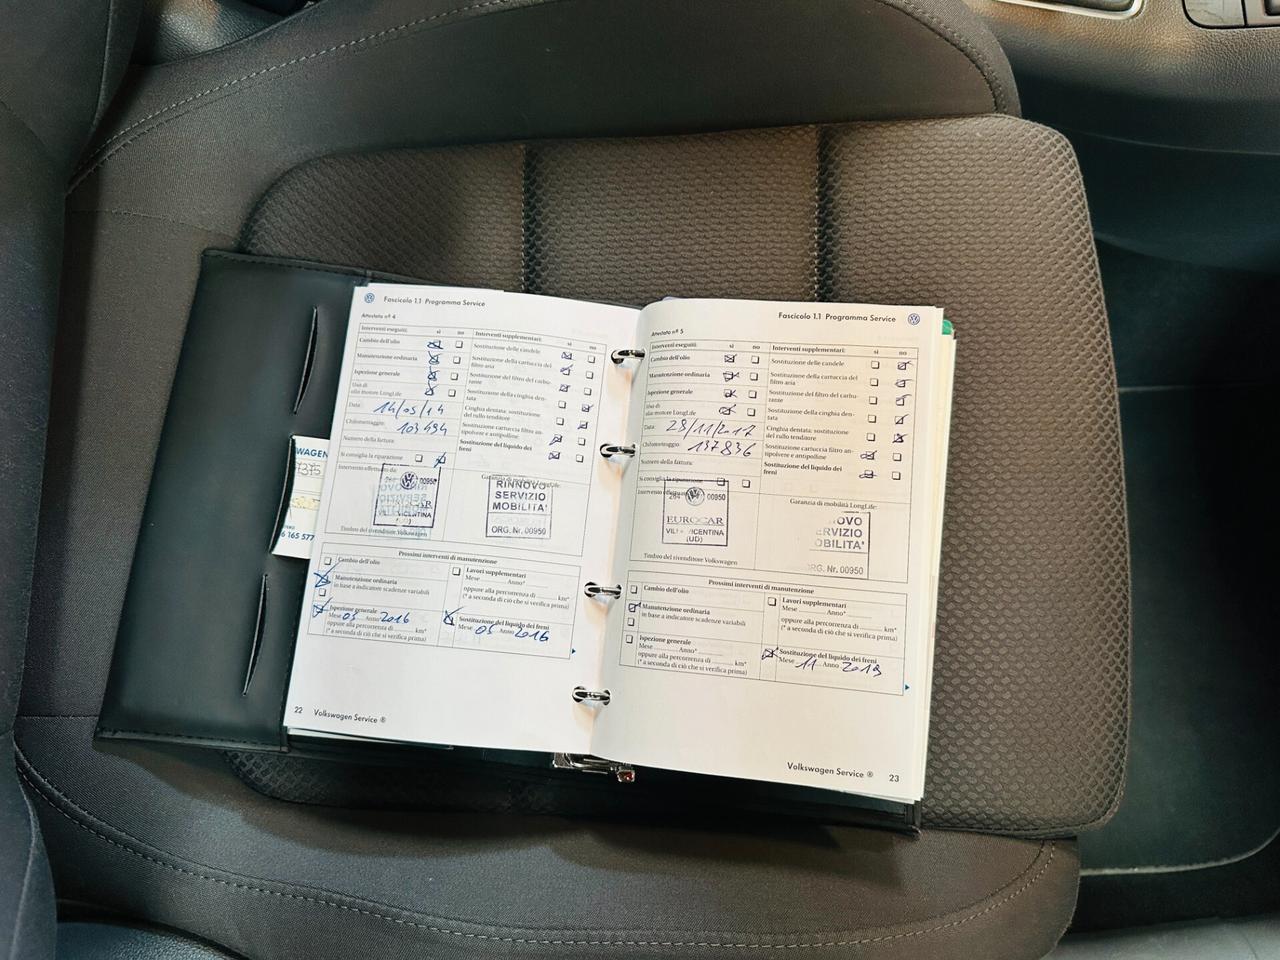 Fascicolo 1.1 Programma Service
Attestato nº 4
Interventi eseguiti: sì no
Cambio dell'olio
Manutenzione ordinaria
Ispezione generale
Uso di
olio motore LongLife
Data: 14/05/14
Chilometraggio: 103494
Numero della fattura:
Si consiglia la riparazione
Intervento effettuato da:
00950
(UD)
Timbro del rivenditore Volkswagen
Interventi supplementari: sì no
Sostituzione delle candele
Sostituzione della cartuccia del
filtro aria
Sostituzione del filtro del carbu-
rante
Sostituzione della cinghia den-
tata
Cinghia dentata: sostituzione
del rullo tenditore
Sostituzione cartuccia filtro an-
tipolvere e antipolline
Sostituzione del liquido dei
freni
Garanzia di mobilità LongLife:
RINNOVO
SERVIZIO
MOBILITA'
ORG. Nr. 00950
Prossimi interventi di manutenzione
Cambio dell'olio
Manutenzione ordinaria
in base a indicatore scadenze variabili
Ispezione generale
Mese 05 Anno 2016
oppure alla percorrenza di ........ km*
(* a seconda di ciò che si verifica prima)
Lavori supplementari
Mese ........ Anno* ........
oppure alla percorrenza di ........ km*
(* a seconda di ciò che si verifica prima)
Sostituzione del liquido dei freni
Mese 05 Anno 2016
22 Volkswagen Service ®
WAGEN
6 165 577
Fascicolo 1.1 Programma Service
Attestato nº 5
Interventi eseguiti: sì no
Cambio dell'olio
Manutenzione ordinaria
Ispezione generale
Uso di
olio motore LongLife
Data: 28/11/2017
Chilometraggio: 137836
Numero della fattura:
Si consiglia la riparazione
Intervento effettuato da:
264 00950
EUROCAR
VICENTINA
(UD)
Timbro del rivenditore Volkswagen
Interventi supplementari: sì no
Sostituzione delle candele
Sostituzione della cartuccia del
filtro aria
Sostituzione del filtro del carbu-
rante
Sostituzione della cinghia den-
tata
Cinghia dentata: sostituzione
del rullo tenditore
Sostituzione cartuccia filtro an-
tipolvere e antipolline
Sostituzione del liquido dei
freni
Garanzia di mobilità LongLife:
OVO
ERVIZIO
OBILITA'
RG. Nr. 00950
Prossimi interventi di manutenzione
Cambio dell'olio
Manutenzione ordinaria
in base a indicatore scadenze variabili
Ispezione generale
Mese ........ Anno* ........
oppure alla percorrenza di ........ km*
(* a seconda di ciò che si verifica prima)
Lavori supplementari
Mese ........ Anno* ........
oppure alla percorrenza di ........ km*
(* a seconda di ciò che si verifica prima)
Sostituzione del liquido dei freni
Mese 11 Anno 2019
Volkswagen Service ® 23